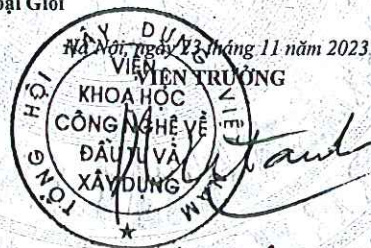 oại Giới
Hà Nội, ngày 23 tháng 11 năm 2023
VIỆN TRƯỞNG
TỔNG HỘI XÂY DỰNG VIỆT NAM
VIỆN
KHOA HỌC
CÔNG NGHỆ VỀ
ĐẦU TƯ VÀ
XÂY DỰNG